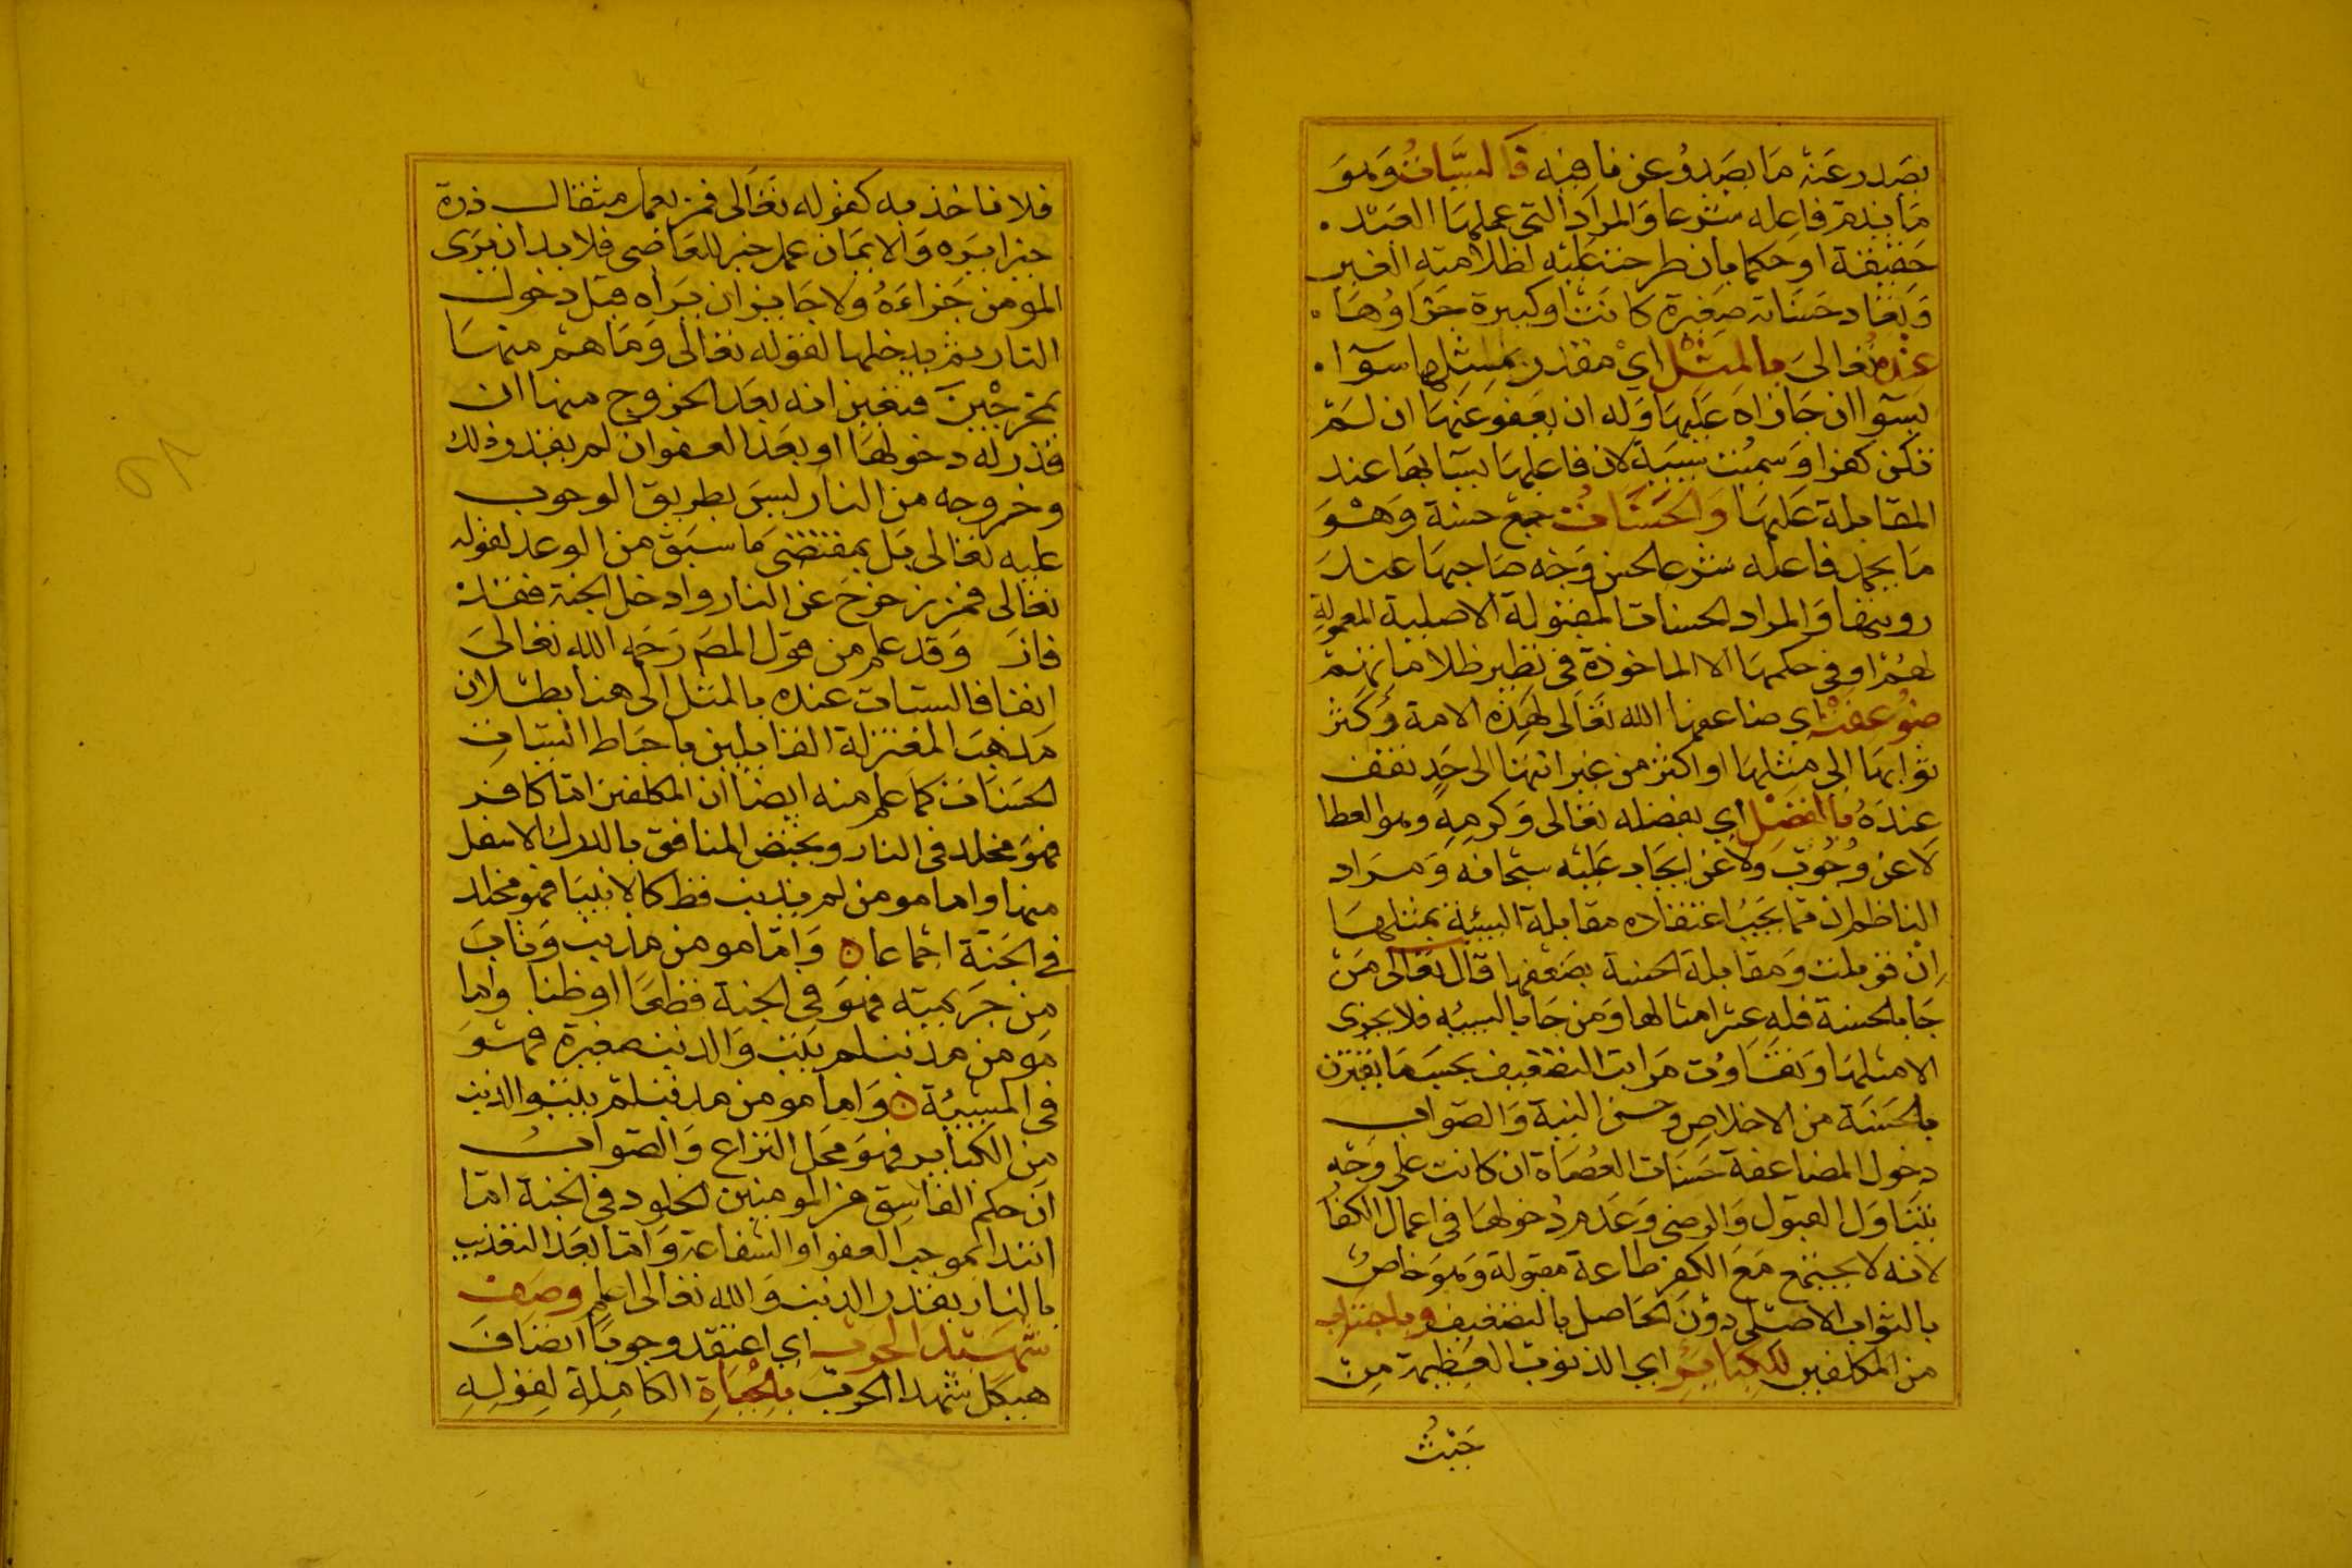 يصدر عنه ما يصدر عن نافيه فالسيات وهو
ما يذم فاعله شرعا والمراد التي عملها العبد
حقيقة او حكما بان طرحت عليه لظلامته الغير
ونفاد حسناته صغيرة كانت او كبيرة جزاوها
عنده تعالى بالمثل اي مقدر بمثلها سوآا
بسوآا ان جازاه عليها وله ان يعفو عنها ان لم
تكن كفرا وسميت سيية لان فاعلها يسآ بها عند
المقابلة عليها والحسنات جمع حسنة وهو
ما يحمد فاعله شرعا لحسن وجه صاحبها عند
رويتها والمراد الحسنات المقبولة الاصلية المعمولة
لهم او في حكمها لا الماخوذة في نظير ظلاماتهم
ضوعفت اي ضاعفها الله تعالى لهذه الامة وكثر
ثوابها الى مثلها او اكثر من غير انتها الى حد تقف
عنده بالفضل اي بفضله تعالى وكرمه وهو العطا
لا عن وجوب ولا عن ايجاب عليه سبحانه ومراد
الناظم ان مما يجب اعتقاده مقابلة السيئة بمثلها
ان قوبلت ومقابلة الحسنة بضعفها قال تعالى من
جا بالحسنة فله عشر امثالها ومن جا بالسيئه فلا يجزى
الا مثلها وتفاوت مراتب التضعيف بحسب ما يقترن
بالحسنة من الاخلاص وحسن النية والصواب
دخول المضاعفة حسنات العصاة ان كانت على وجه
يتناول القبول والرضى وعدم دخولها في اعمال الكفا
لانه لا يجتمع مع الكفر طاعة مقبولة وهو خاص
بالثواب الاصلى دون الحاصل بالتضعيف وباجتناب
من المكلفين للكبائر اي الذنوب العظيمة من
حيث
فلا ناخذ به كقوله تعالى فمن يعمل مثقال ذرة
خيرا يره والايمان عمل خير للعاصى فلا بد ان يرى
المومن جزاءه ولا جايز ان يراه قبل دخول
النار ثم يدخلها لقوله تعالى وما هم منها
بمخرجين فتعين انه بعد الخروج منها ان
قدر له دخولها او بعد العفو ان لم يقدر ذلك
وخروجه من النار ليس بطريق الوجوب
عليه تعالى بل بمقتضى ما سبق من الوعد لقوله
تعالى فمن زحزح عن النار وادخل الجنة فقد
فاز وقد علم من قول المصم رحمه الله تعالى
انفا فالسيات عنده بالمثل الى هنا بطلان
مذهب المعتزلة القايلين باحباط السيات
الحسنات كما علم منه ايضا ان المكلفين اما كافر
فهو مخلد في النار ويختص المنافق بالدرك الاسفل
منها واما مومن لم يذنب قط كالانبيا فهو مخلد
في الجنة اجماعا ٥ واما مومن مذنب وتاب
من جريمته فهو في الجنة قطعا او ظنا واما
مومن مذنب لم يتب والذنب صغيرة فهو
في المشيئة ٥ واما مومن مذنب لم يتب والذنب
من الكباير فهو محل النزاع والصواب
ان حكم الفاسق من المومنين الخلود في الجنة اما
ابتدا بموجب العفو او الشفاعة واما بعد التعذيب
بالنار بقدر الذنب والله تعالى اعلم وصف
شهيد الحرب اي اعتقد وجوبا اتصاف
هيكل شهدا الحرب بالحياة الكاملة لقوله